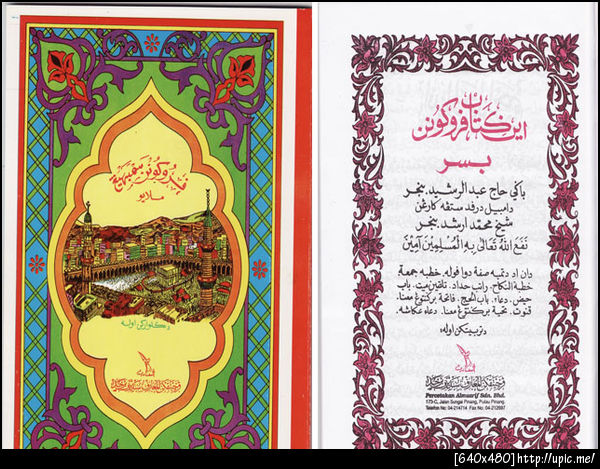 فروكونن سمبهيڠ
ملايو
دكلواركن اوله
اين كتاب فروكونن
بسر
باڬي حاج عبد الرشيد بنجر
دامبيل درفد
شيخ محمد ارشد بنجر
نفع الله تعالى به المسلمين آمين
دان اد دتمبه صفة دوا فوله. خطبة جمعة
خطبة النكاح. راتب حداد. تلقين ميت. باب
حيض. دعاء. باب الحج. فاتحة بركنتوڠ معنا.
قنوت. تحية بركنتوڠ معنا. دعاء عكاشه.
دتربيتكن اوله
Percetakan Almuarif Sdn. Bhd.
173-C, Jalan Sungai Pinang, Pulau Pinang.
Telefon No: 04-214714 Fax No: 04-212697
[640x480]http://upic.me/